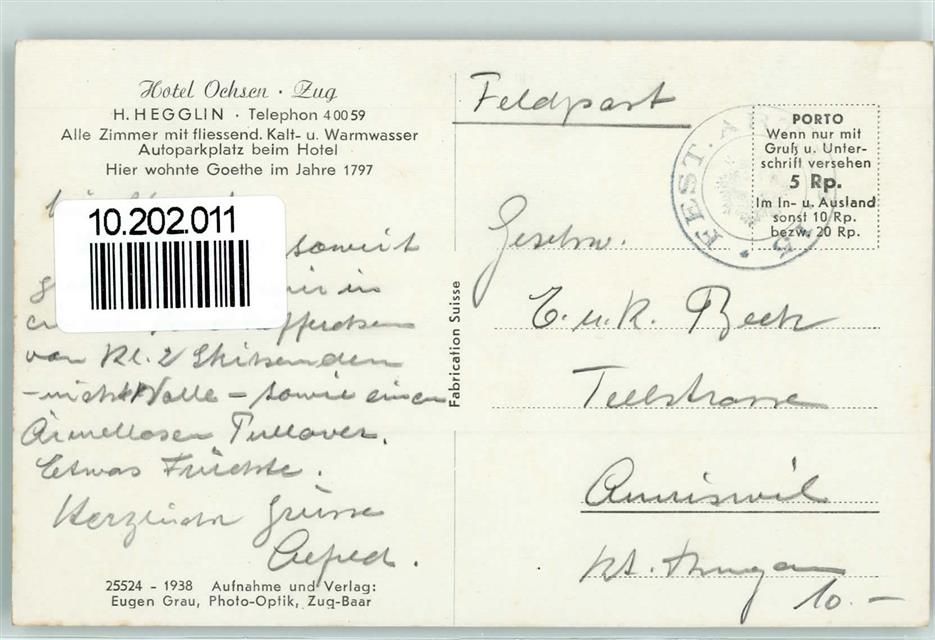 Hotel Ochsen · Zug
H. HEGGLIN · Telephon 40059
Alle Zimmer mit fliessend. Kalt- u. Warmwasser
Autoparkplatz beim Hotel
Hier wohnte Goethe im Jahre 1797
10.202.011
soweit
in
von Kl. 2
– nicht Wolle – sowie einen
Ärmellosen Pullover.
Etwas Früchte.
Herzliche Grüsse
Alfred.
25524 - 1938 Aufnahme und Verlag:
Eugen Grau, Photo-Optik, Zug-Baar
Fabrication Suisse
Feldpost
FEST. AR
PORTO
Wenn nur mit
Gruß u. Unter-
schrift versehen
5 Rp.
Im In- u. Ausland
sonst 10 Rp.
bezw. 20 Rp.
Geschw.
E. u. K. Beck
Tellstrasse
Amriswil
Kt. Thurgau
10.–